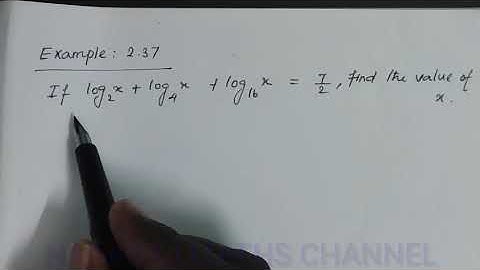 Example: 2.37
If log₂x + log₄x + log₁₆x = 7/2, find the value of x.
CHANNEL